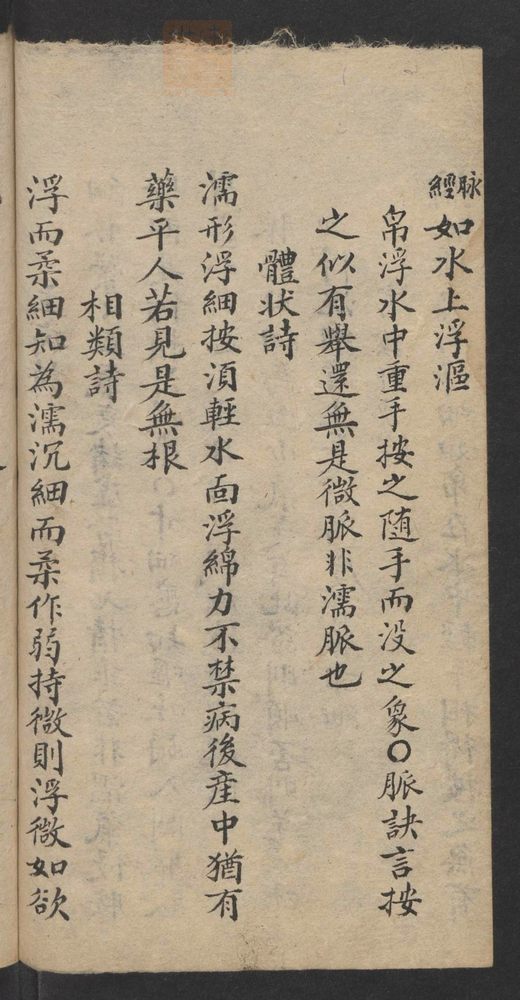 脉經如水上浮漚
帛浮水中重手按之随手而没之象〇脈訣言按
之似有舉還無是微脈非濡脈也
體状詩
濡形浮細按湏輕水面浮綿力不禁病後産中猶有
藥平人若見是無根
相類詩
浮而柔細知為濡沉細而柔作弱持微則浮微如欲